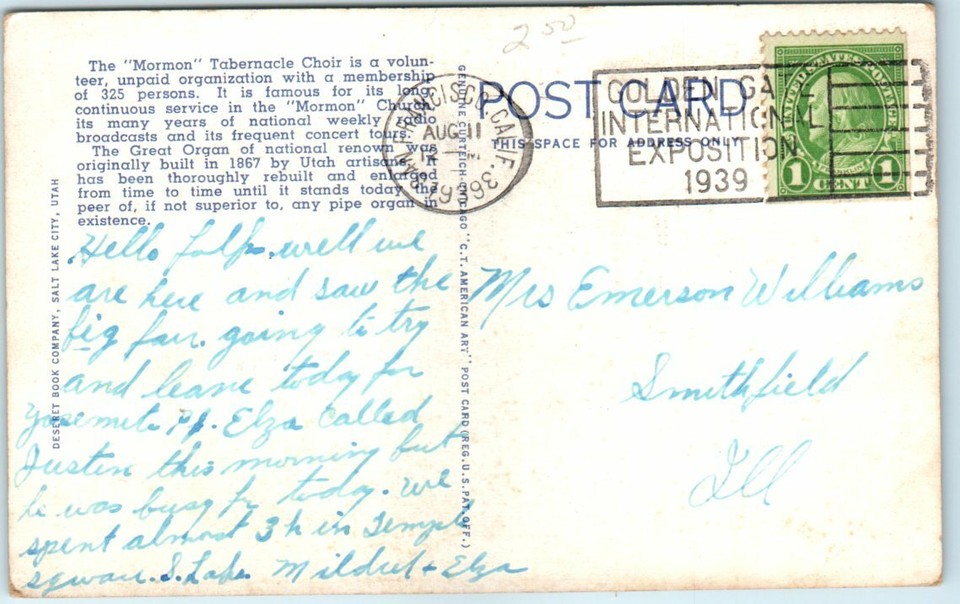 2 50
The "Mormon" Tabernacle Choir is a volun-
teer, unpaid organization with a membership
of 325 persons. It is famous for its long
continuous service in the "Mormon" Church,
its many years of national weekly radio
broadcasts and its frequent concert tours.
The Great Organ of national renown was
originally built in 1867 by Utah artisans. It
has been thoroughly rebuilt and enlarged
from time to time until it stands today the
peer of, if not superior to, any pipe organ in
existence.
DESERET BOOK COMPANY, SALT LAKE CITY, UTAH
Hello folks, well we
are here and saw the
big fair. going to try
and leave today for
Yosemite Elza called
Justin this morning but
he was busy today. We
spent almost 3 h in Temple
sqware. S. Lake. Mildred + Elza
GENUINE CURTEICH-CHICAGO "C.T. AMERICAN ART" POST CARD (REG. U.S. PAT. OFF.)
POST CARD
THIS SPACE FOR ADDRESS ONLY
FRANCISCO, CALIF.
AUG 11
PM
1939
GOLDEN GATE
INTERNATIONAL
EXPOSITION
1939
1 CENT 1
Mrs Emerson Williams
Smithfield
Ill